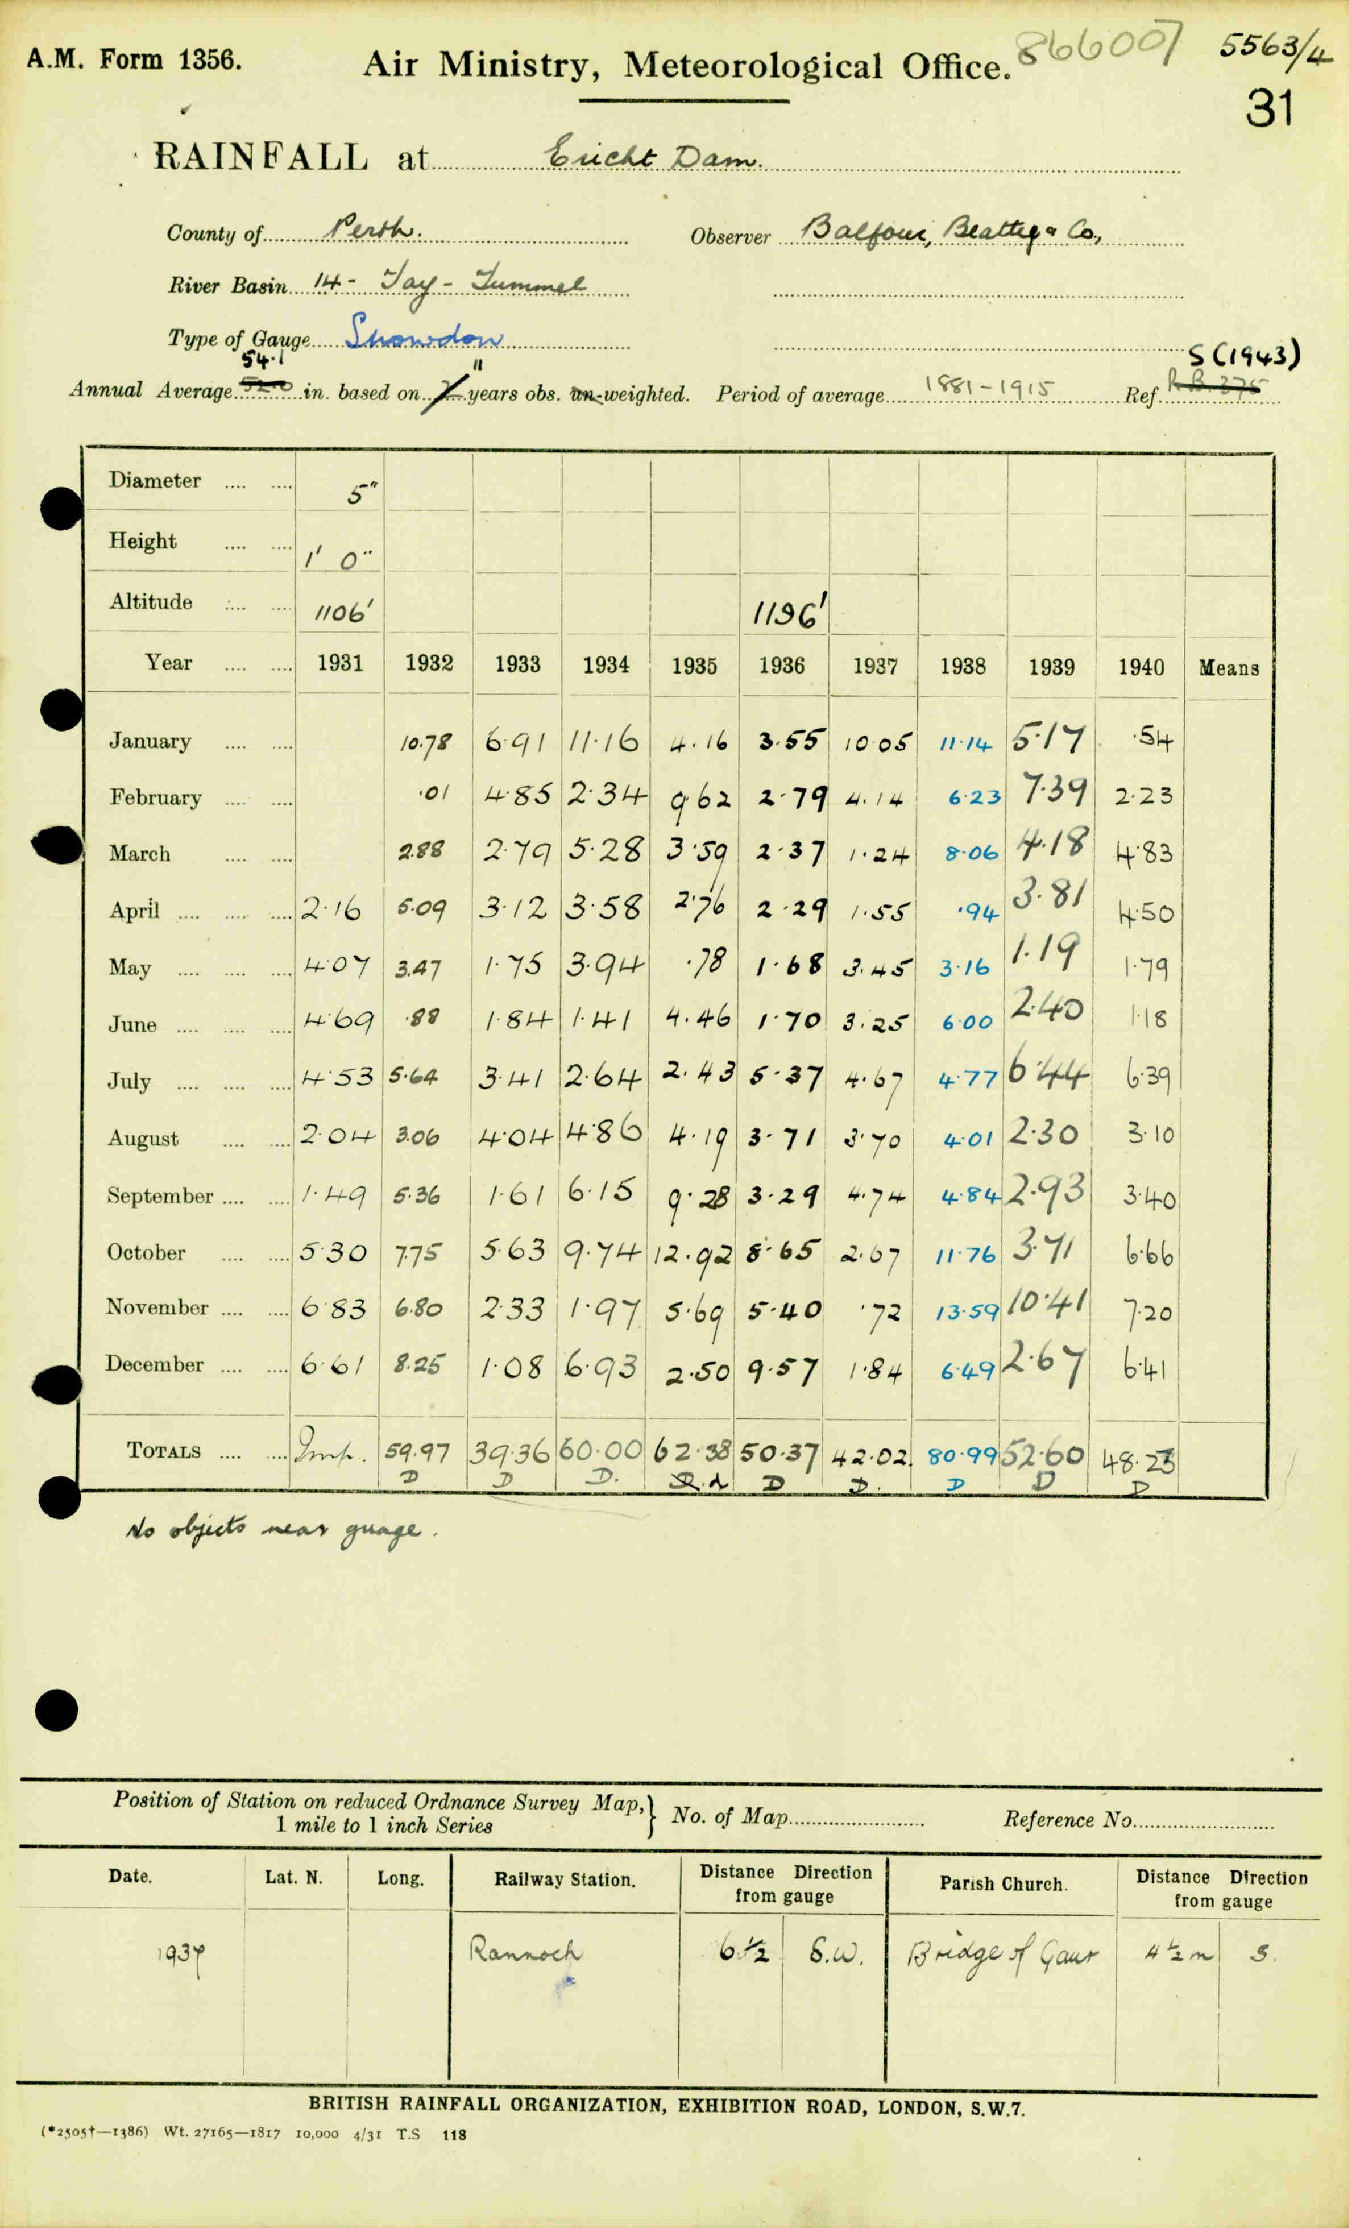 A.M. Form 1356.
Air Ministry, Meteorological Office.
866007
5563/4
31
RAINFALL at Ericht Dam.
County of Perth. Observer Balfour, Beatty & Co.,
River Basin 14 - Tay - Tummel
Type of Gauge Snowdon
54.1 " S (1943)
Annual Average 52.0 in. based on years obs. un-weighted. Period of average 1881-1915 Ref. R.B. 375
Diameter 5"
Height 1' 0"
Altitude 1106' 1196'
Year 1931 1932 1933 1934 1935 1936 1937 1938 1939 1940 Means
January 10.78 6.91 11.16 4.16 3.55 10.05 11.14 5.17 .54
February .01 4.85 2.34 9.62 2.79 4.14 6.23 7.39 2.23
March 2.88 2.79 5.28 3.59 2.37 1.24 8.06 4.18 4.83
April 2.16 5.09 3.12 3.58 2.76 2.29 1.55 .94 3.81 4.50
May 4.07 3.47 1.75 3.94 .78 1.68 3.45 3.16 1.19 1.79
June 4.69 .88 1.84 1.41 4.46 1.70 3.25 6.00 2.40 1.18
July 4.53 5.64 3.41 2.64 2.43 5.37 4.67 4.77 6.44 6.39
August 2.04 3.06 4.04 4.86 4.19 3.71 3.70 4.01 2.30 3.10
September 1.49 5.36 1.61 6.15 9.28 3.29 4.74 4.84 2.93 3.40
October 5.30 7.75 5.63 9.74 12.92 8.65 2.67 11.76 3.71 6.66
November 6.83 6.80 2.33 1.97 5.69 5.40 .72 13.59 10.41 7.20
December 6.61 8.25 1.08 6.93 2.50 9.57 1.84 6.49 2.67 6.41
TOTALS Imp. 59.97 39.36 60.00 62.38 50.37 42.02. 80.99 52.60 48.23
D D D. D D. D D D
No objects near guage.
Position of Station on reduced Ordnance Survey Map, 1 mile to 1 inch Series } No. of Map Reference No.
Date. Lat. N. Long. Railway Station. Distance Direction from gauge Parish Church. Distance Direction from gauge
1937 Rannoch 6 ½ S.W. Bridge of Gaur 4 ½ m S.
BRITISH RAINFALL ORGANIZATION, EXHIBITION ROAD, LONDON, S.W.7.
(*2505†—1386) Wt. 27165—1817 10,000 4/31 T.S 118